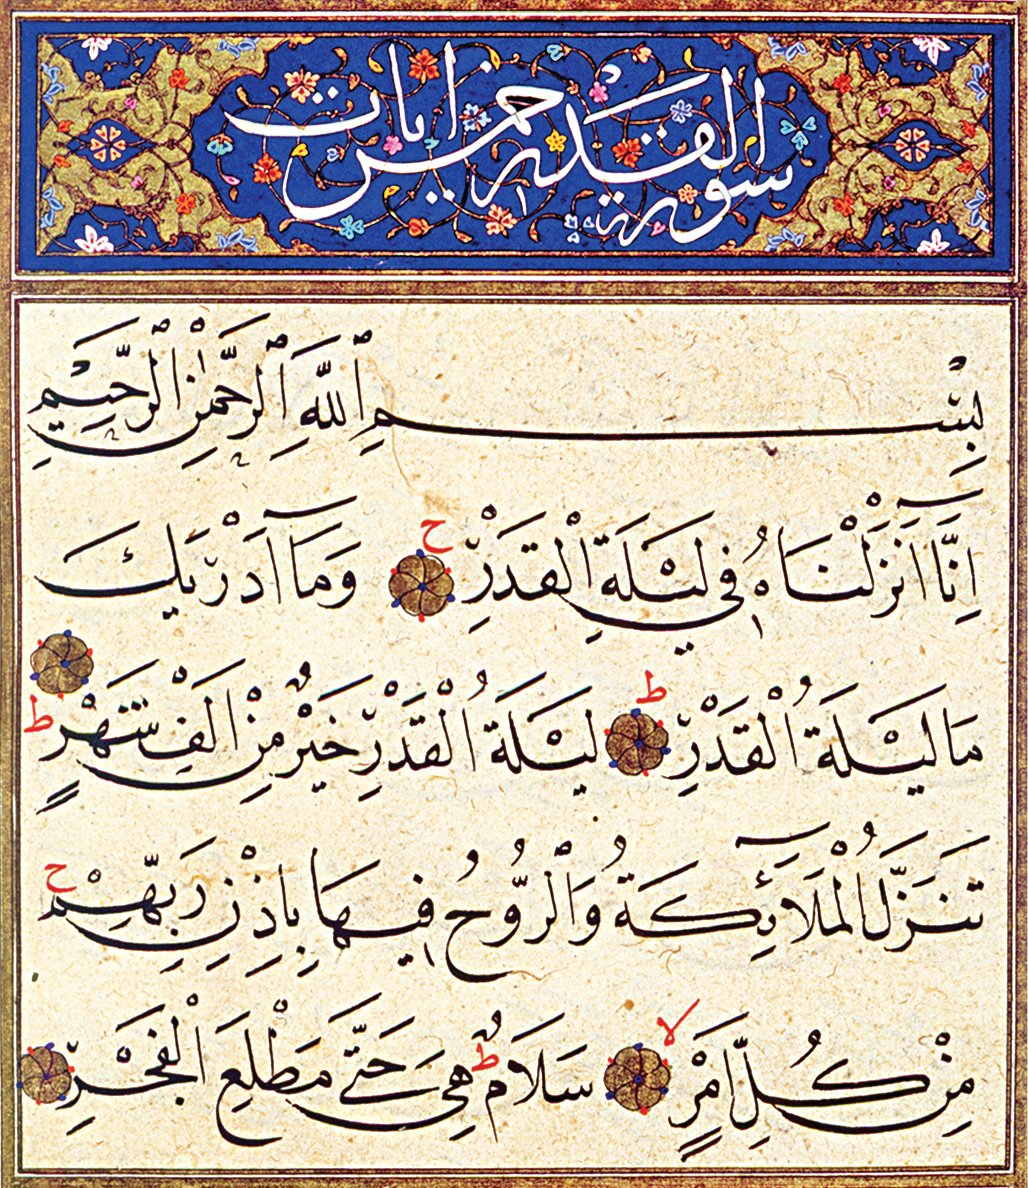 سورة القدر خمس ايات
بِسْمِ ٱللَّهِ ٱلرَّحْمٰنِ ٱلرَّحِيمِ
اِنَّٓا اَنْزَلْنَاهُ فِي لَيْلَةِ الْقَدْرِ ح وَمَٓا اَدْرٰيكَ
مَا لَيْلَةُ الْقَدْرِ ط لَيْلَةُ الْقَدْرِ خَيْرٌ مِنْ اَلْفِ شَهْرٍ ط
تَنَزَّلُ الْمَلَٓائِكَةُ وَالرُّوحُ فِيهَا بِاِذْنِ رَبِّهِمْ ح
مِنْ كُلِّ اَمْرٍ لا سَلَامٌ ط هِيَ حَتّٰى مَطْلَعِ الْفَجْرِ